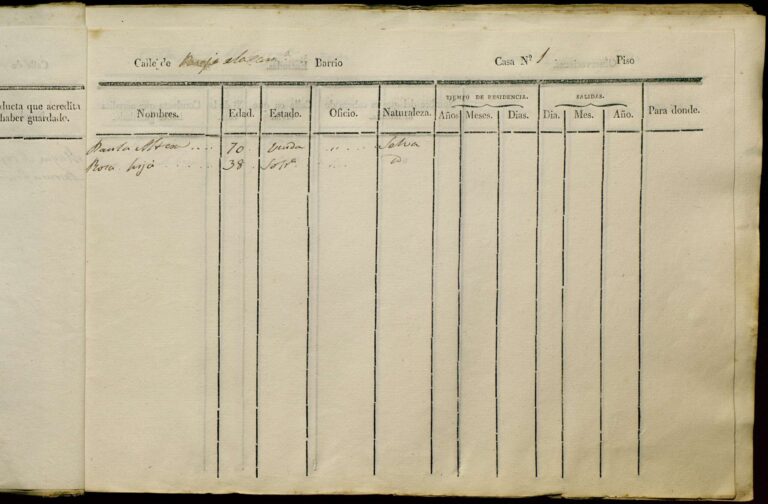 Calle de Barrio Casa Nº 1 Piso
ducta que acredita
haber guardado.
Nombres. Edad. Estado. Oficio. Naturaleza. TIEMPO DE RESIDENCIA. Años Meses. Dias. SALIDAS. Dia. Mes. Año. Para donde.
Paula .... 70 viuda .. .. Selva
Rosa hija ...... 38 Solt.ª .. .. D